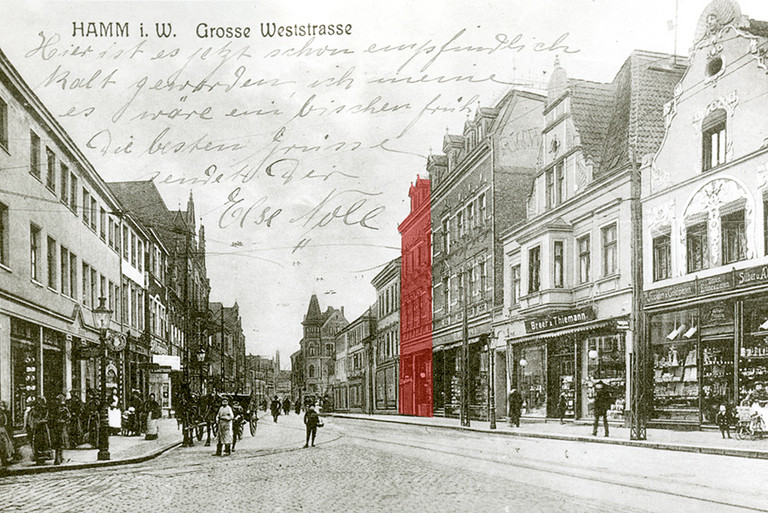 HAMM i. W. Grosse Weststrasse
Hier ist es jetzt schon empfindlich
kalt geworden, ich meine
es wäre ein bischen früh.
Die besten Grüsse
sendet Dir
Else Nolle
Breer & Thiemann.
Silber u.